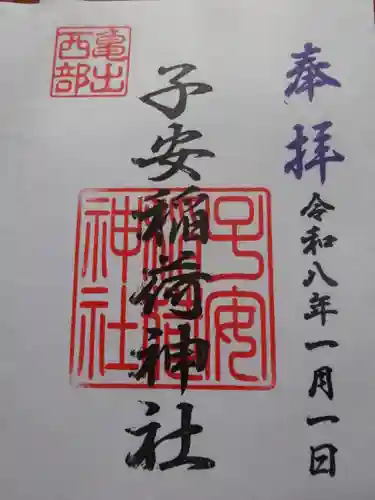 奉拝
令和八年一月一日
子安稲荷神社
子安稲荷神社
亀出西部